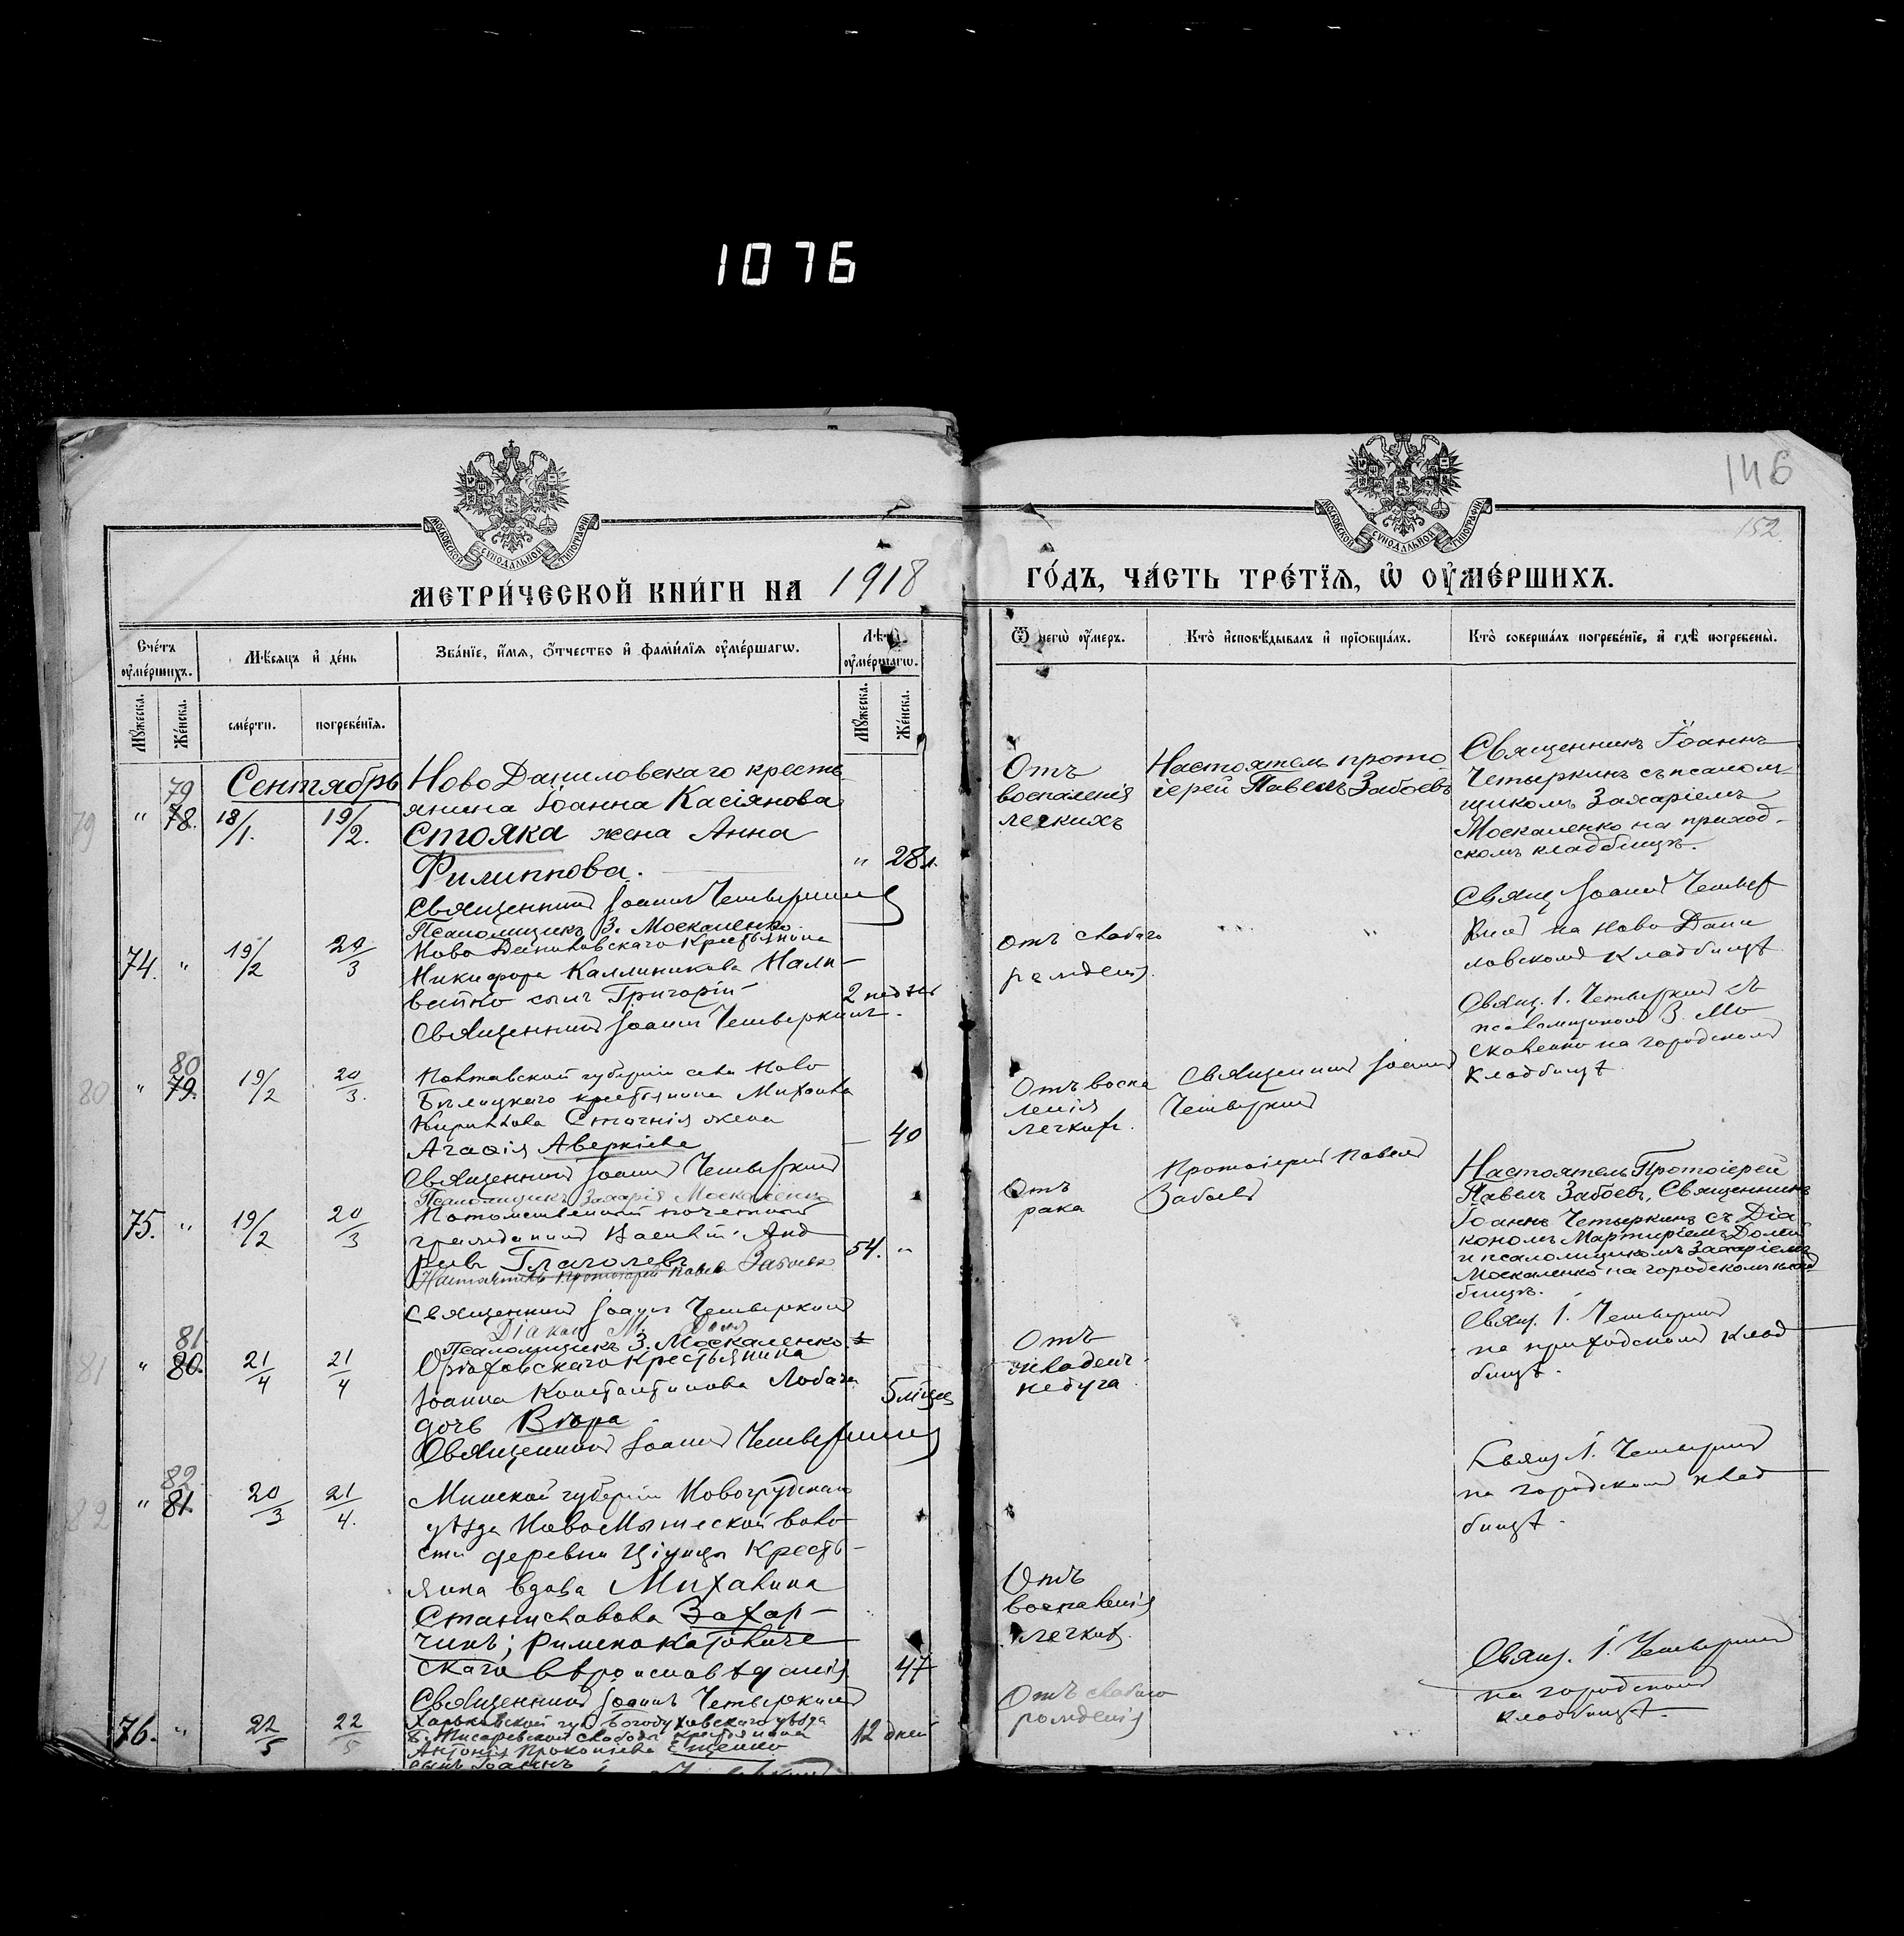 1076
146
152.
МОСКОВСКОЙ СѴНОДАЛЬНОЙ ТИПОГРАФІИ
МОСКОВСКОЙ СѴНОДАЛЬНОЙ ТИПОГРАФІИ
МЕТРИ́ЧЕСКОЙ КНИ́ГИ НА 1918 ГО́ДЪ, ЧА́СТЬ ТРЕ́ТЇѦ, Ѡ҆ ОУ҆МЕ́РШИХЪ.
Сче́тъ оу҆ме́ршихъ.
Мꙋ́жеска.
Же́нска.
Мѣ́сяцъ и҆ де́нь
сме́рти.
погребе́нїя.
Зва́нїе, и҆́мя, ѻ҆́тчество и҆ фами́лїя оу҆ме́ршагѡ.
Лѣ́та оу҆ме́ршагѡ.
Мꙋ́жеска.
Же́нска.
Ѿ чегѡ̀ оу҆́меръ.
Кто̀ и҆сповѣ́дывалъ и҆ прїѡбща́лъ.
Кто̀ соверша́лъ погребе́нїе, и҆ гдѣ̀ погребены̀.
Сентябрь
79
79
" 78. 18/1. 19/2.
НовоДаниловскаго кресть
янина Іоанна Касіянова
Стояка жена Анна
Филиппова.
" 28л.
Священникъ Іоаннъ Четыркинъ
Псаломщикъ З. Москаленко
Отъ
воспаленія
легкихъ
Настоятель прото
іерей Павелъ Забоевъ
Священникъ Іоаннъ
Четыркинъ съ псалом-
щикомъ Захаріемъ
Москаленко на приход-
скомъ кладбищѣ.
74. " 19/2 20/3
Ново Даниловскаго крестьянина
Никифора Каллиникова Нали-
вайко сынъ Григорій
2 нед
Священникъ Іоаннъ Четыркинъ.
отъ слабаго
рожденія.
Свящ Іоаннъ Четыр
кинъ на Ново Дани
ловскомъ кладбищѣ
80
80
" 79. 19/2 20/3.
Полтавской губерніи села Ново
крестьянина Михаила
Кириллова жена
Агафія Аверкіева
— 40
Священникъ Іоаннъ Четыркинъ
Псаломщикъ Захарія Москаленко
Отъ воспа
ленія
легких.
Священникъ Іоаннъ
Четыркинъ
Свящ. І. Четыркинъ съ
псаломщикомъ З. Мо
скаленко на городскомъ
кладбищѣ.
75. " 19/2 20/3
Потомственный почетный
гражданинъ Василій Анд
реевъ Глаголевъ
54. "
Настоятель протоіерей Павелъ Забоевъ
Священникъ Іоаннъ Четыркинъ
Діаконъ М.
Псаломщикъ З. Москаленко.
Отъ
рака
Протоіерей Павелъ
Забоевъ
Настоятель Протоіерей
Павелъ Забоевъ, Священникъ
Іоаннъ Четыркинъ съ Діа
кономъ Мартиріемъ
и псаломщикомъ Захаріемъ
Москаленко на городскомъ клад
бищѣ.
81
81.
" 80. 21/4 21/4
Орѣховскаго крестьянина
Іоанна Константинова Лобача
дочь Вѣра
5 мѣсяц
Священникъ Іоаннъ Четыркинъ
Отъ
младенч.
недуга
Свящ. І. Четыркинъ
на приходскомъ клад
бищѣ.
82
82
" 81. 20/3 21/4.
Минской губерніи Новогрудскаго
уѣзда НовоМышской воло
сти деревни крестья-
янина вдова Михалина
Станиславова Захар-
чикъ; римскокатоличе
скаго вѣроисповѣданія
47
Священникъ Іоаннъ Четыркинъ
Отъ
воспаленія
легких.
Свящ І. Четыркинъ
на городскомъ клад
бищѣ.
76. " 22/5 22/5
Харьковской губ Богодуховскаго уѣзда
Б. Писаревской слободы крестьянина
Антонія Прокопіева Ещенко
сынъ Іоаннъ
12 дней
Отъ слабаго
рожденія
Свящ. І. Четыркинъ
на городскомъ
кладбищѣ.